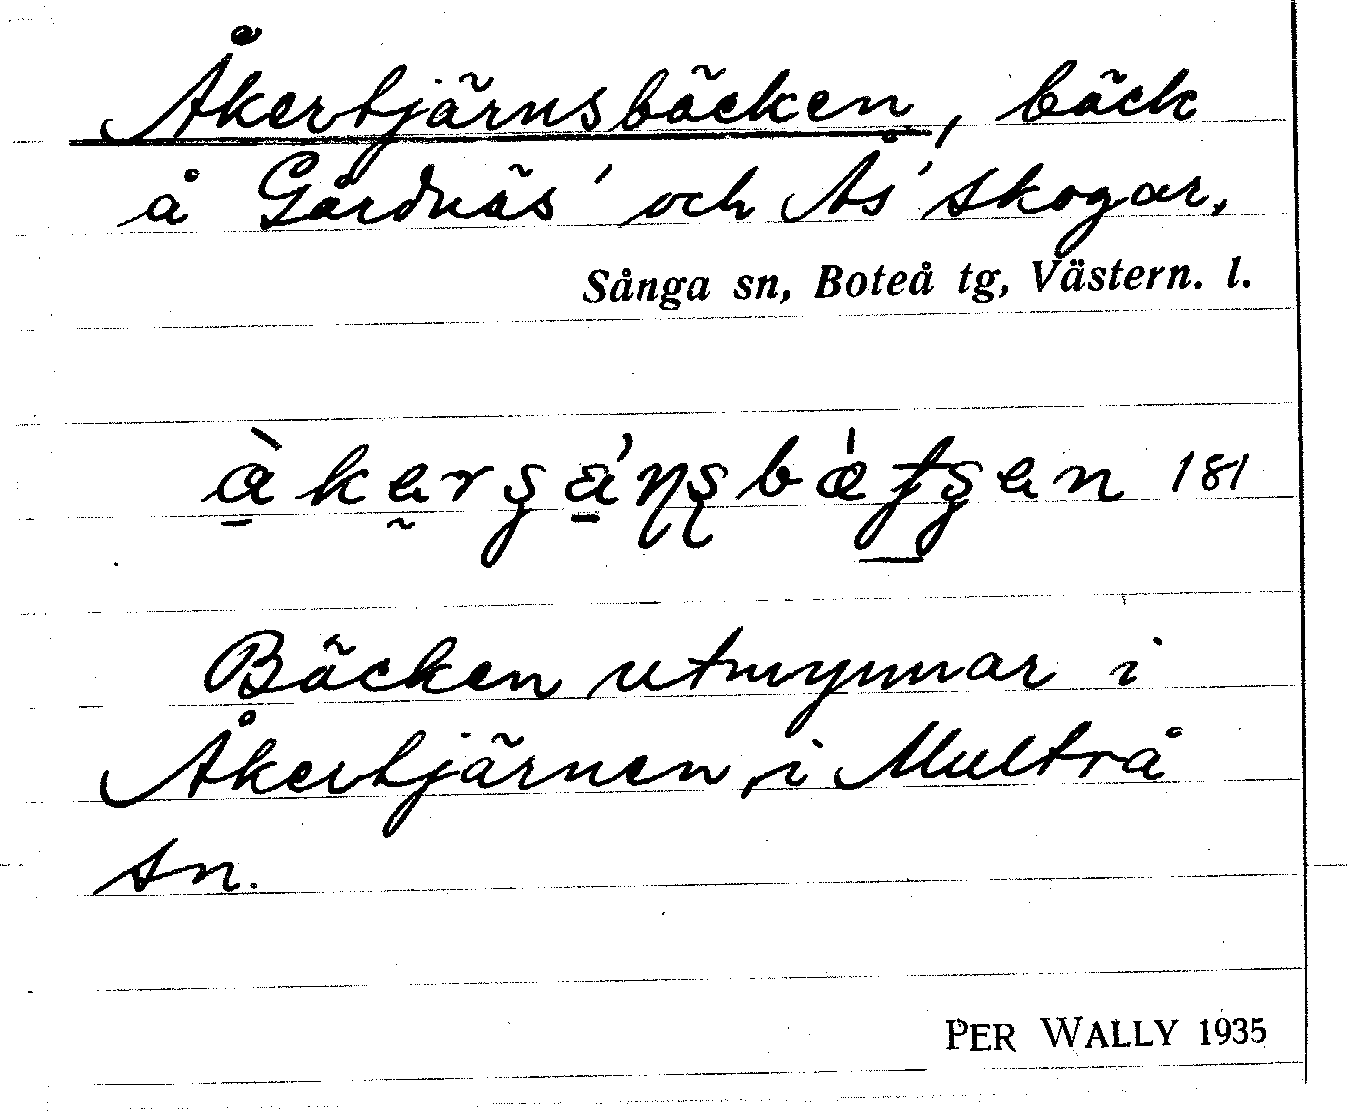 Åkertjärnsbäcken, bäck
å Gårdnäs' och Ås' skogar,
Sånga sn, Boteå tg, Västern. l.
181
Bäcken utmynnar i
Åkertjärnen, i Multrå
sn.
PER WALLY 1935